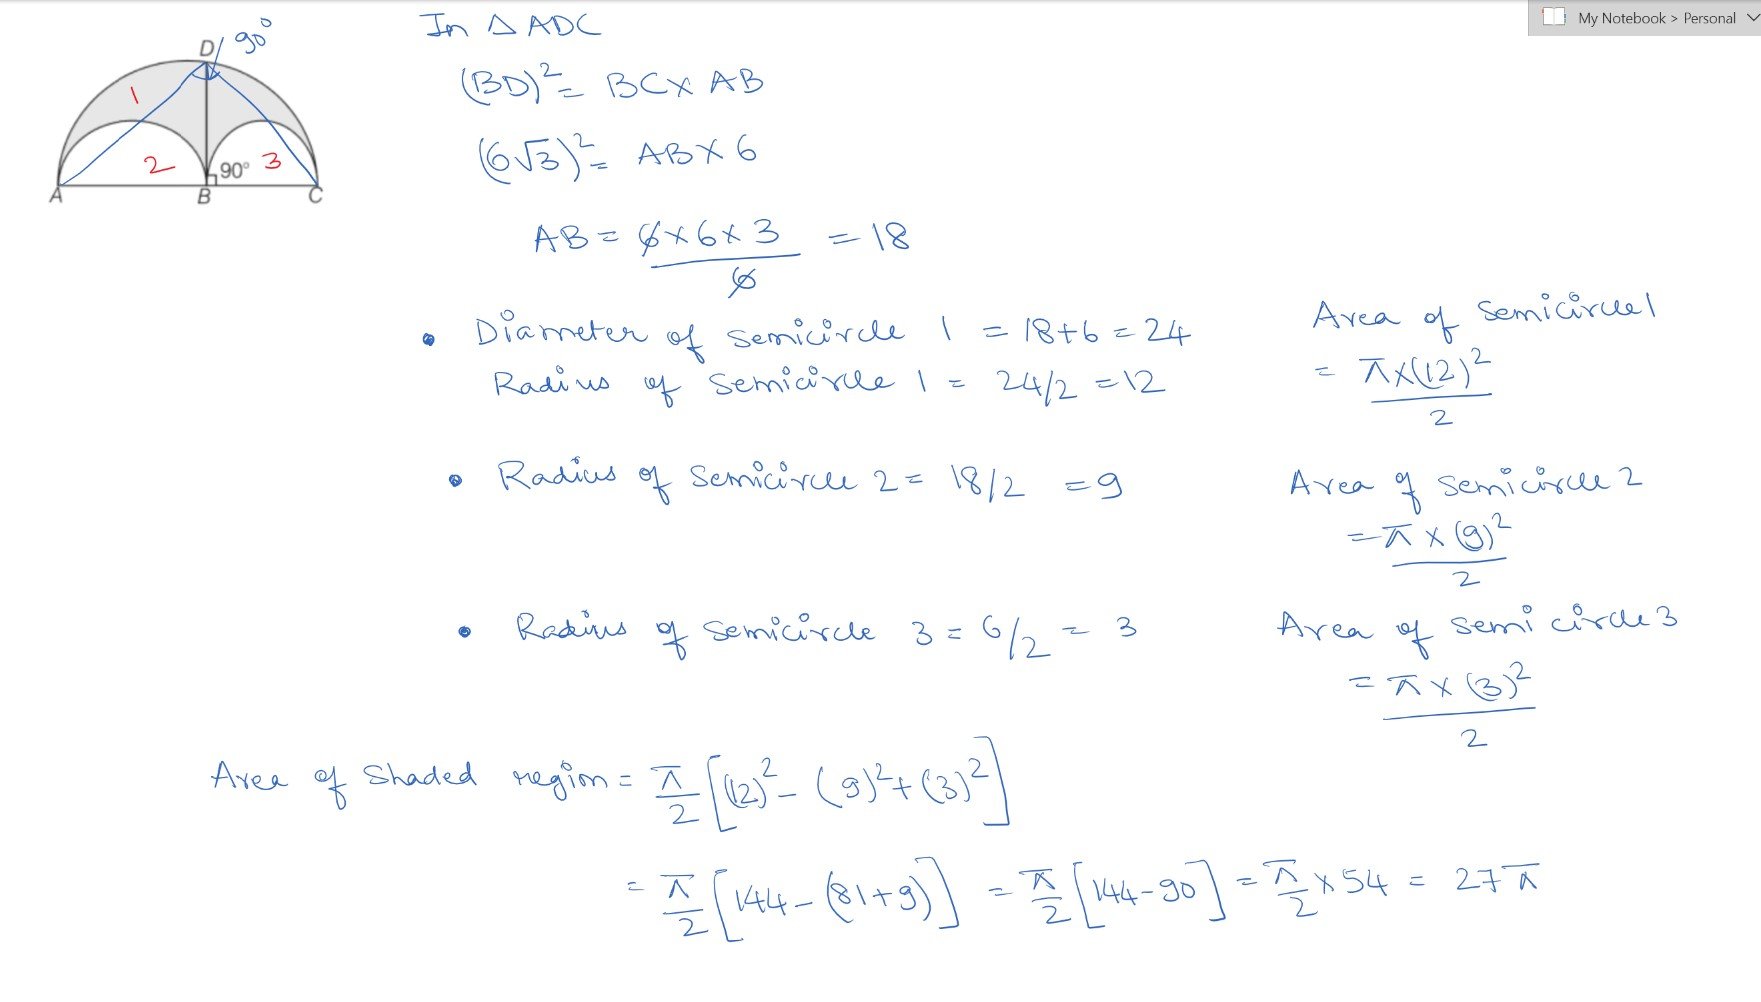 My Notebook > Personal
In △ ADC
D 90°
(BD)² = BC × AB
1
(6√3)² = AB × 6
2 90° 3
A B C
AB = 6 × 6 × 3 / 6 = 18
• Diameter of semicircle 1 = 18+6 = 24
Radius of semicircle 1 = 24/2 = 12
Area of semicircle 1
= π×(12)² / 2
• Radius of semicircle 2 = 18/2 = 9
Area of semicircle 2
= π × (9)² / 2
• Radius of semicircle 3 = 6/2 = 3
Area of semi circle 3
= π × (3)² / 2
Area of shaded region = π/2 [(12)² - (9)² + (3)²]
= π/2 [144 - (81+9)] = π/2 [144-90] = π/2 × 54 = 27π